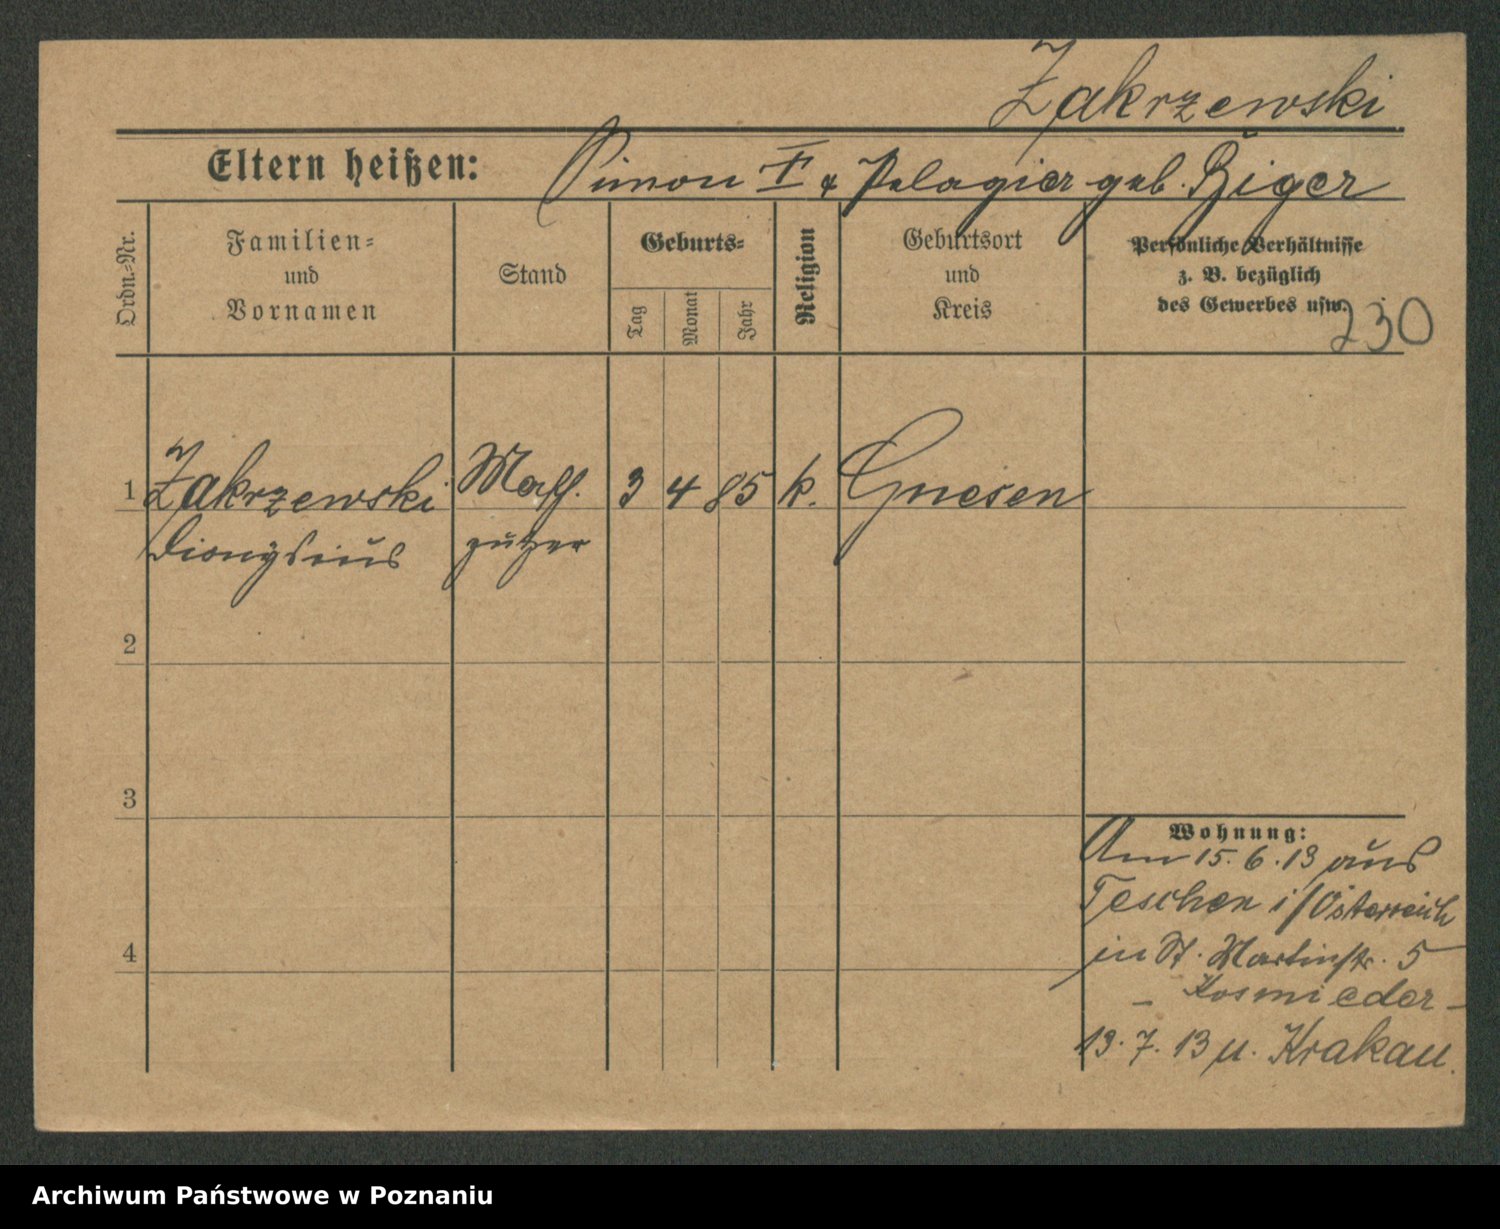 Zakrzewski
Eltern heißen: Simon & Pelagia geb. Ziger
Ordn.=Nr.
Familien=
und
Vornamen
Stand
Geburts=
Tag
Monat
Jahr
Religion
Geburtsort
und
Kreis
Persönliche Verhältnisse
z. B. bezüglich
des Gewerbes usw.
230
1 Zakrzewski 3 4 85 k. Gnesen
Dionysius
2
3
Wohnung:
Am 15. 6. 13 aus
Teschen i/Österreich
4
in St. Martinstr. 5
13. 7. 13 n. Krakau.
Archiwum Państwowe w Poznaniu